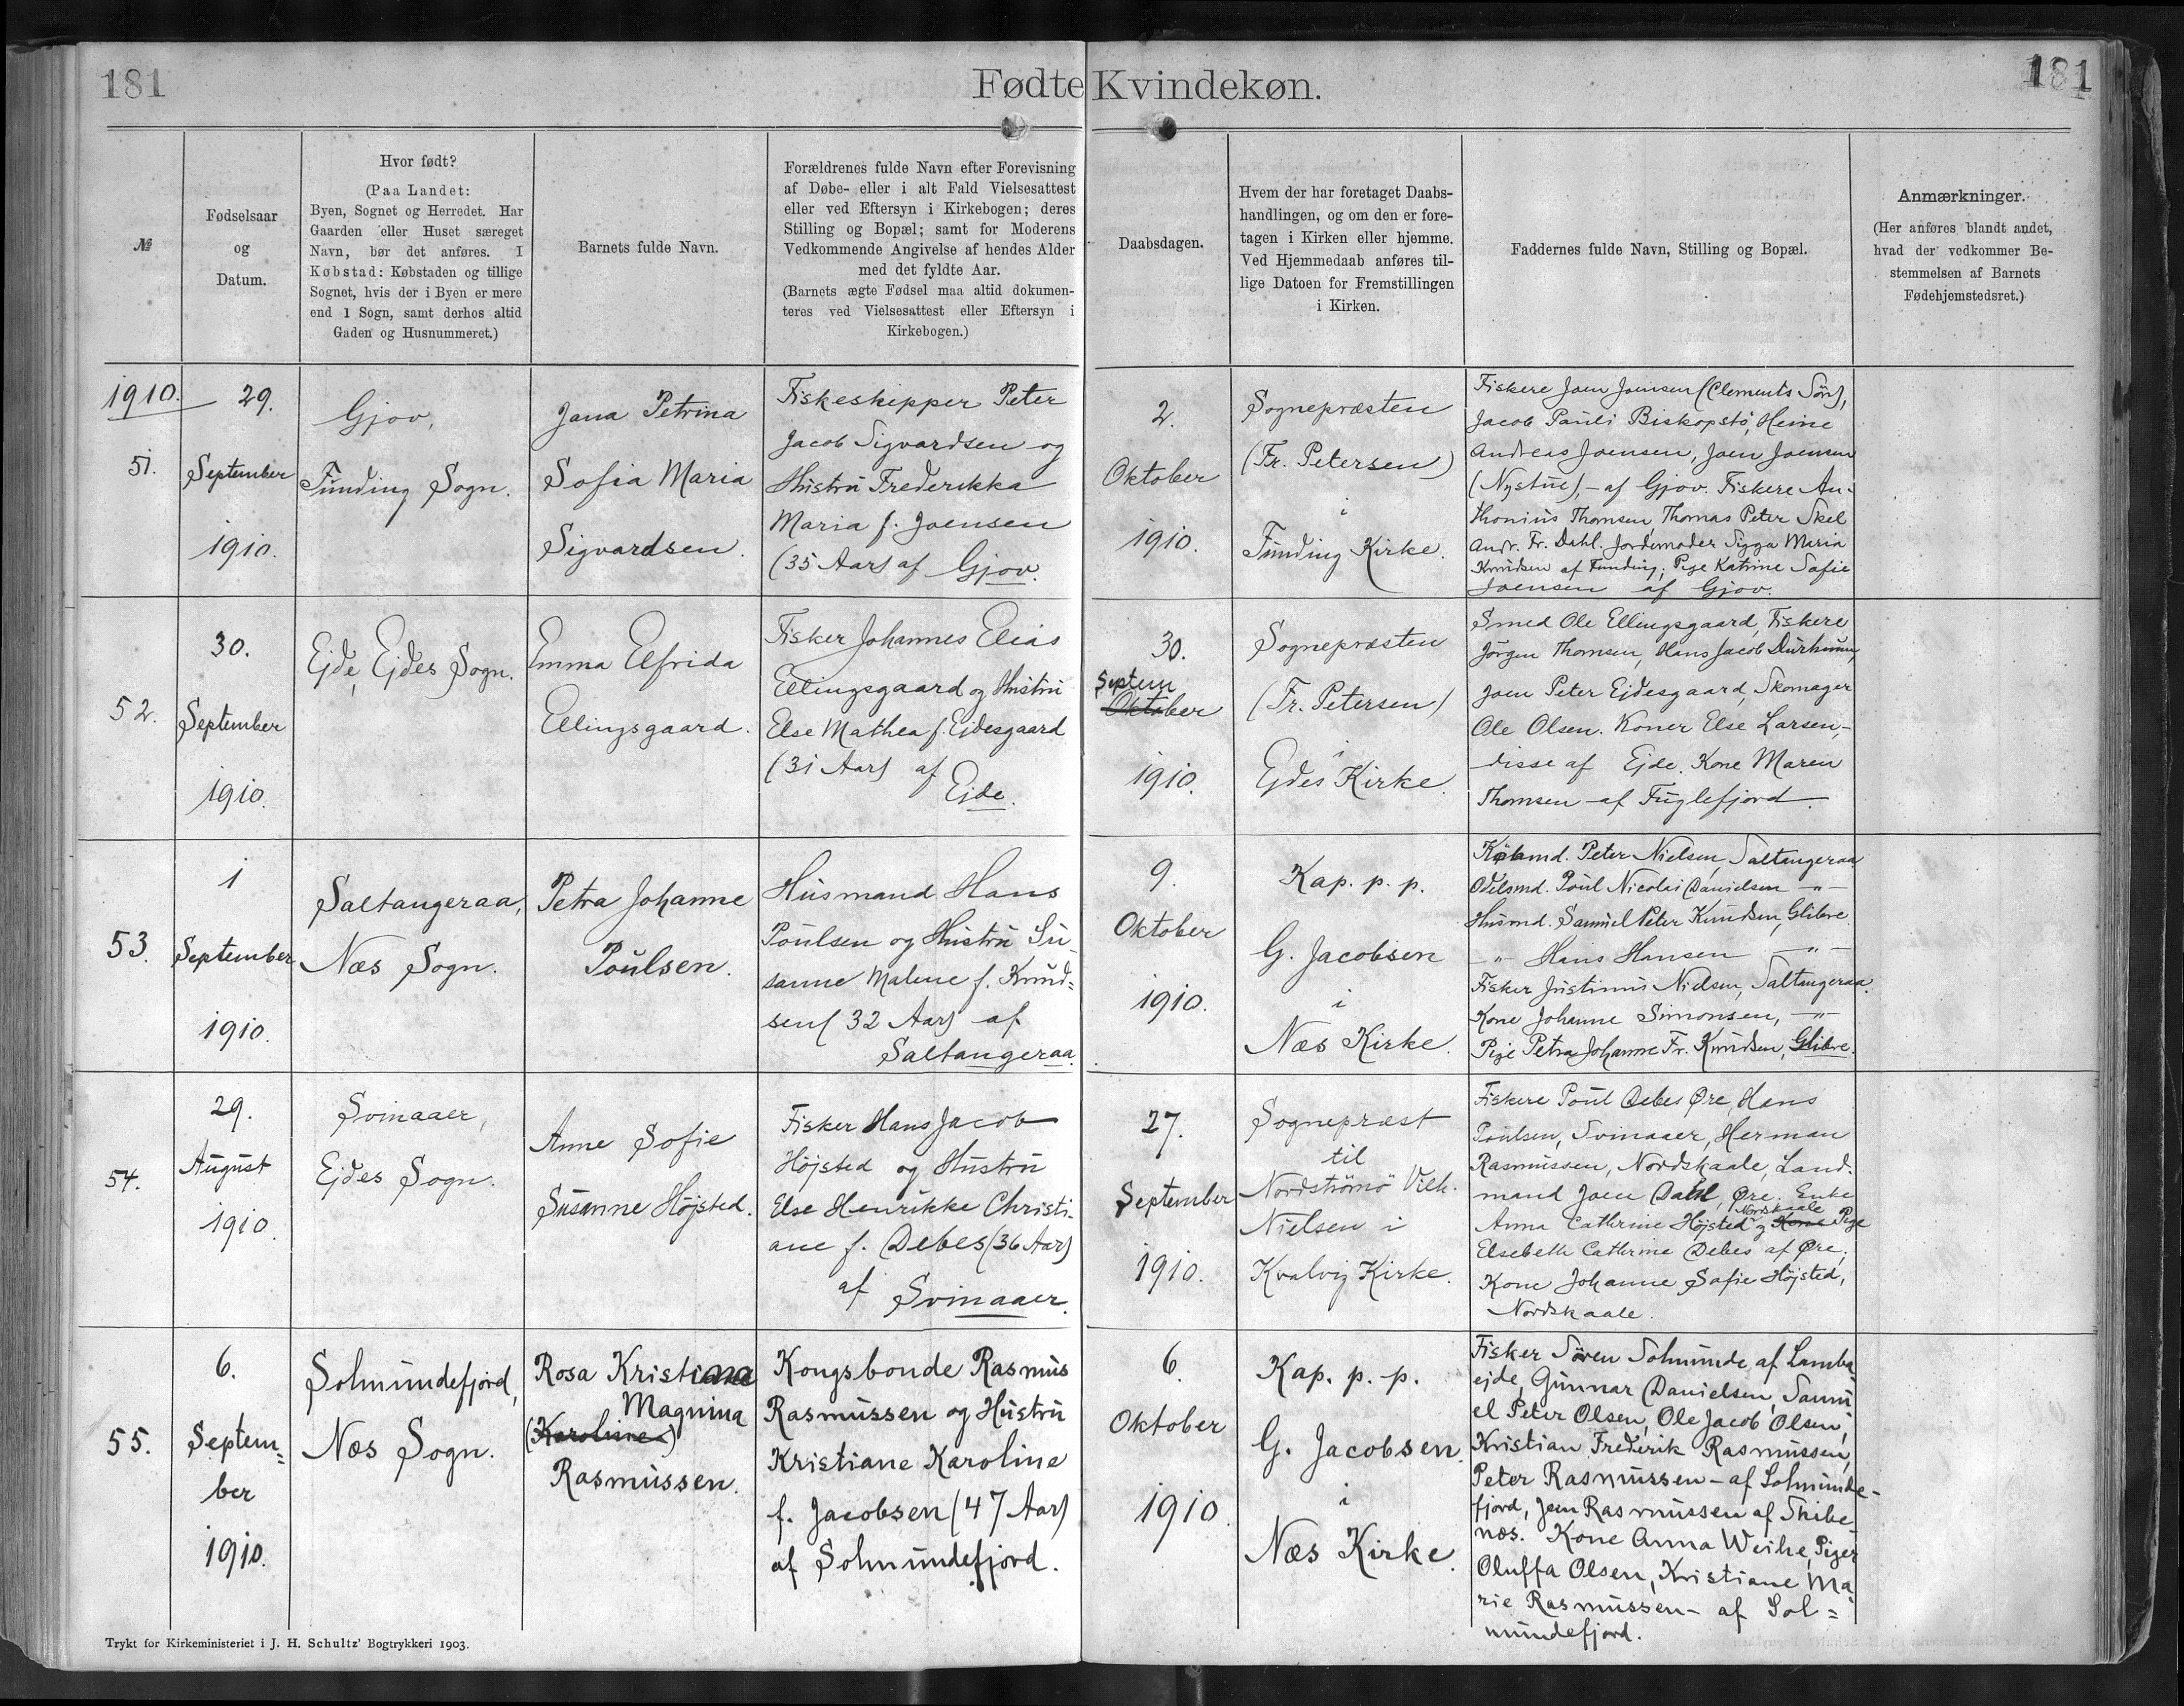 181
Fødte Kvindekøn.
181
№
Fødselsaar
og
Datum.
Hvor født?
(Paa Landet:
Byen, Sognet og Herredet. Har
Gaarden eller Huset særeget
Navn, bør det anføres. I
Købstad: Købstaden og tillige
Sognet, hvis der i Byen er mere
end 1 Sogn, samt derhos altid
Gaden og Husnummeret.)
Barnets fulde Navn.
Forældrenes fulde Navn efter Forevisning
af Døbe- eller i alt Fald Vielsesattest
eller ved Eftersyn i Kirkebogen; deres
Stilling og Bopæl; samt for Moderens
Vedkommende Angivelse af hendes Alder
med det fyldte Aar.
(Barnets ægte Fødsel maa altid dokumen-
teres ved Vielsesattest eller Eftersyn i
Kirkebogen.)
Daabsdagen.
Hvem der har foretaget Daabs-
handlingen, og om den er fore-
tagen i Kirken eller hjemme.
Ved Hjemmedaab anføres til-
lige Datoen for Fremstillingen
i Kirken.
Faddernes fulde Navn, Stilling og Bopæl.
Anmærkninger.
(Her anføres blandt andet,
hvad der vedkommer Be-
stemmelsen af Barnets
Fødehjemstedsret.)
1910.
51.
29.
September
1910.
Gjov,
Funding Sogn.
Jana Petrina
Sofia Maria
Sigvardsen.
Fiskeskipper Peter
Jacob Sigvardsen og
Hustru Frederikka
Maria f. Joensen
(35 Aar) af Gjov.
2.
Oktober
1910.
Sognepræsten
(Fr. Petersen)
i
Funding Kirke.
Fiskere Joen Joensen (Clements Søn),
Jacob Pauli Biskopstö, Heine
Andreas Joensen, Joen Joensen
(Nystue), - af Gjov. Fiskere An-
thonius Thomsen, Thomas Peter Skel
Andr. Fr. Dahl. Jordemoder Sigga Maria
Knudsen af Funding; Pige Katrine Sofie
Joensen af Gjov.
52.
30.
September
1910.
Ejde, Ejdes Sogn.
Emma Elfrida
Ellingsgaard.
Fisker Johannes Elias
Ellingsgaard og Hustru
Else Mathea f. Ejdesgaard
(31 Aar) af
Ejde.
30.
Septem
Oktober
1910.
Sognepræsten
(Fr. Petersen)
i
Ejdes Kirke.
Smed Ole Ellingsgaard, Fiskere
Jörgen Thomsen, Hans Jacob Durhuus,
Joen Peter Ejdesgaard, Skomager
Ole Olsen. Koner Else Larsen,-
disse af Ejde. Kone Maren
Thomsen - af Fuglefjord.
53.
1
September
1910.
Saltangeraa,
Næs Sogn.
Petra Johanne
Poulsen.
Husmand Hans
Poulsen og Hustru Su-
sanne Malene f. Knud-
sen (32 Aar) af
Saltangeraa.
9.
Oktober
1910.
Kap. p. p.
G. Jacobsen
i
Næs Kirke.
Købmd. Peter Nielsen, Saltangeraa
Odelsmd. Poul Nicolai Danielsen -"-
Husmd. Samuel Peter Knudsen, Glibre
-"- Hans Hansen -"-
Fisker Justinus Nielsen, Saltangeraa.
Kone Johanne Simonsen, -"-
Pige Petra Johanne Fr. Knudsen, Glibre.
54.
29.
August
1910.
Svinaaer,
Ejdes Sogn.
Anne Sofie
Susanne Højsted.
Fisker Hans Jacob
Højsted og Hustru
Else Henrikke Christi-
ane f. Debes (36 Aar)
af Svinaaer.
27.
September
1910.
Sognepræst
til
Nordströmö Vilh.
Nielsen i
Kvalvig Kirke.
Fiskere Poul Debes Øre, Hans
Poulsen, Svinaaer, Herman
Rasmussen, Nordskaale, Land-
mand Joen Dahl, Øre. Enke
Nordskaale
Anna Cathrine Højsted og Kone Pige
Elsebeth Cathrine Debes af Øre;
Kone Johanne Sofie Højsted,
Nordskaale.
55.
6.
Septem-
ber
1910.
Solmundefjord,
Næs Sogn.
Rosa Kristiana
Magnina
(Karoline)
Rasmussen.
Kongsbonde Rasmus
Rasmussen og Hustru
Kristiane Karoline
f. Jacobsen (47 Aar)
af Solmundefjord.
6.
Oktober
1910
Kap. p. p.
G. Jacobsen.
i
Næs Kirke.
Fisker Sören Solmunde af Lamba-
ejde, Gunnar Danielsen, Samu-
el Peter Olsen, Ole Jacob Olsen,
Kristian Frederik Rasmussen,
Peter Rasmussen - af Solmunde-
fjord, Jen Rasmussen af Skibe-
næs. Kone Anna Weihe, Piger
Oluffa Olsen, Kristiane Ma-
rie Rasmussen - af Sol=
mundefjord.
Trykt for Kirkeministeriet i J. H. Schultz' Bogtrykkeri 1903.